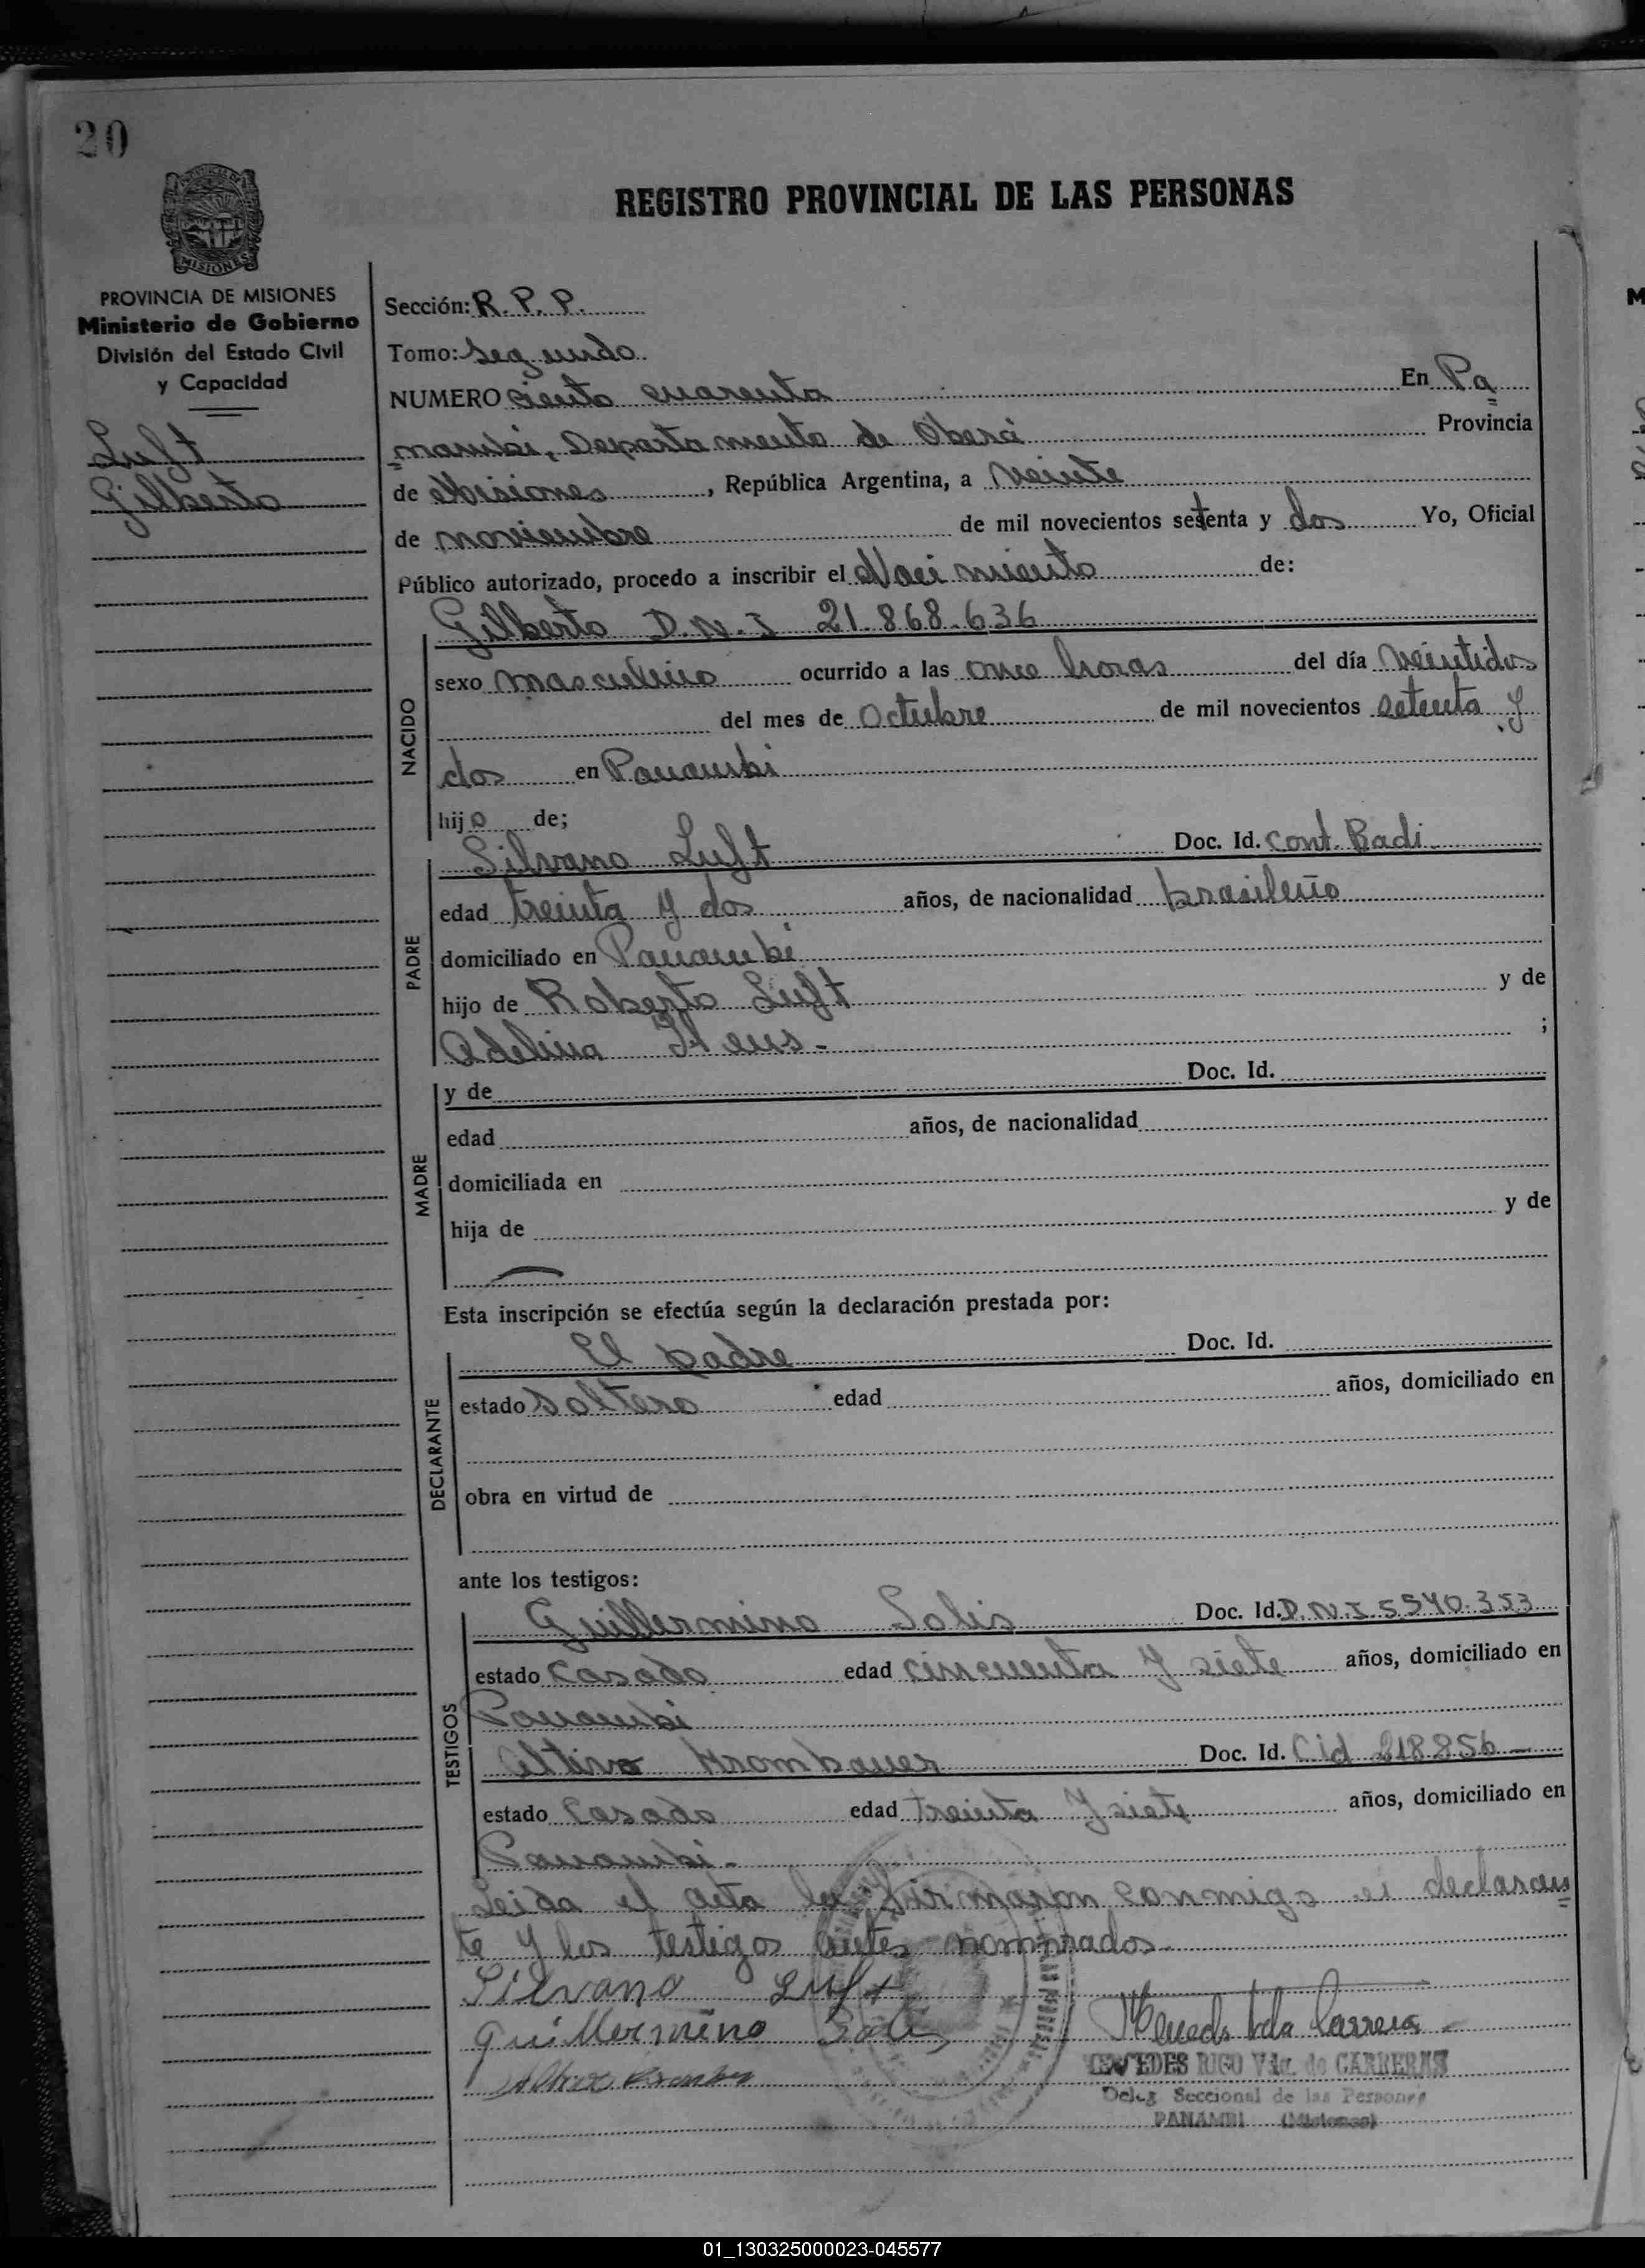 20
REGISTRO PROVINCIAL DE LAS PERSONAS
MISIONES
PROVINCIA DE MISIONES
Ministerio de Gobierno
División del Estado Civil
y Capacidad
Luft
Gilberto
Sección: R. P. P.
Tomo: Segundo
NUMERO ciento cuarenta En Pa
nambi, Departamento de Oberá Provincia
de Misiones, República Argentina, a veinte
de noviembre de mil novecientos setenta y dos Yo, Oficial
Público autorizado, procedo a inscribir el Nacimiento de:
Gilberto D.N.I 21.868.636
NACIDO
sexo masculino ocurrido a las once horas del día veintidos
del mes de Octubre de mil novecientos setenta y
dos en Panambi
hijo de;
PADRE
Silvano Luft Doc. Id. Cont. Radi.
edad treinta y dos años, de nacionalidad brasileño
domiciliado en Panambi
hijo de Roberto Luft y de
Adelina ;
MADRE
y de Doc. Id.
edad años, de nacionalidad
domiciliada en
hija de y de
Esta inscripción se efectúa según la declaración prestada por:
DECLARANTE
El padre Doc. Id.
estado Soltero edad años, domiciliado en
obra en virtud de
ante los testigos:
TESTIGOS
Guillermino Solis Doc. Id. D.N.I. 5.540.353
estado Casado edad cincuenta y siete años, domiciliado en
Panambi
Altivo Krombauer Doc. Id. Cid 218856
estado Casado edad treinta y siete años, domiciliado en
Panambi.
Leida el acta la firmaron conmigo el declaran
te y los testigos antes nombrados
Silvano Luft
Guillermino Solis
MERCEDES RIGO Vda. de CARRERAS
Deleg Seccional de las Personas
PANAMBI (Misiones)
01_130325000023-045577